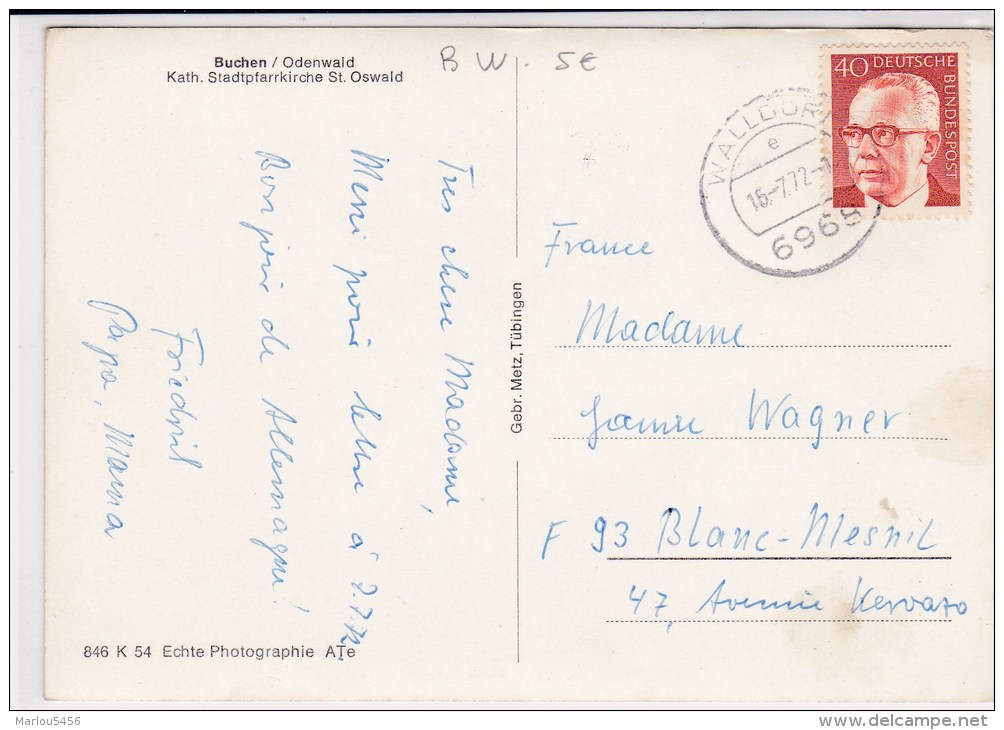 Buchen / Odenwald
Kath. Stadtpfarrkirche St. Oswald
B W. 5€
40 DEUTSCHE BUNDESPOST
WALLDÜRN
e
16.-7.72-1
6968
Tres chere Madame,
Merci pour lettre á 7.7.72.
Bonjour de Allemagne!
Friedril
Papa, Mama
Gebr. Metz, Tübingen
France
Madame
Jeanne Wagner
F 93 Blanc-Mesnil
47, Avenue Kervazo
846 K 54 Echte Photographie ATe
Marlou5456
www.delcampe.net